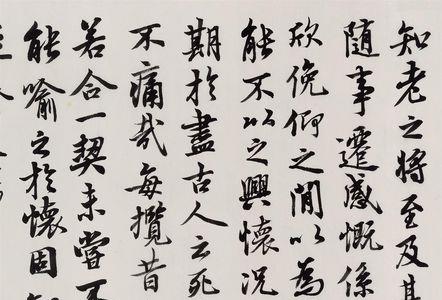 知老之將至及其
随事遷感慨係
欣俛仰之間以為
能不以之興懷況
期於盡古人云死
不痛哉每攬昔
若合一契未嘗不
能喻之於懷固